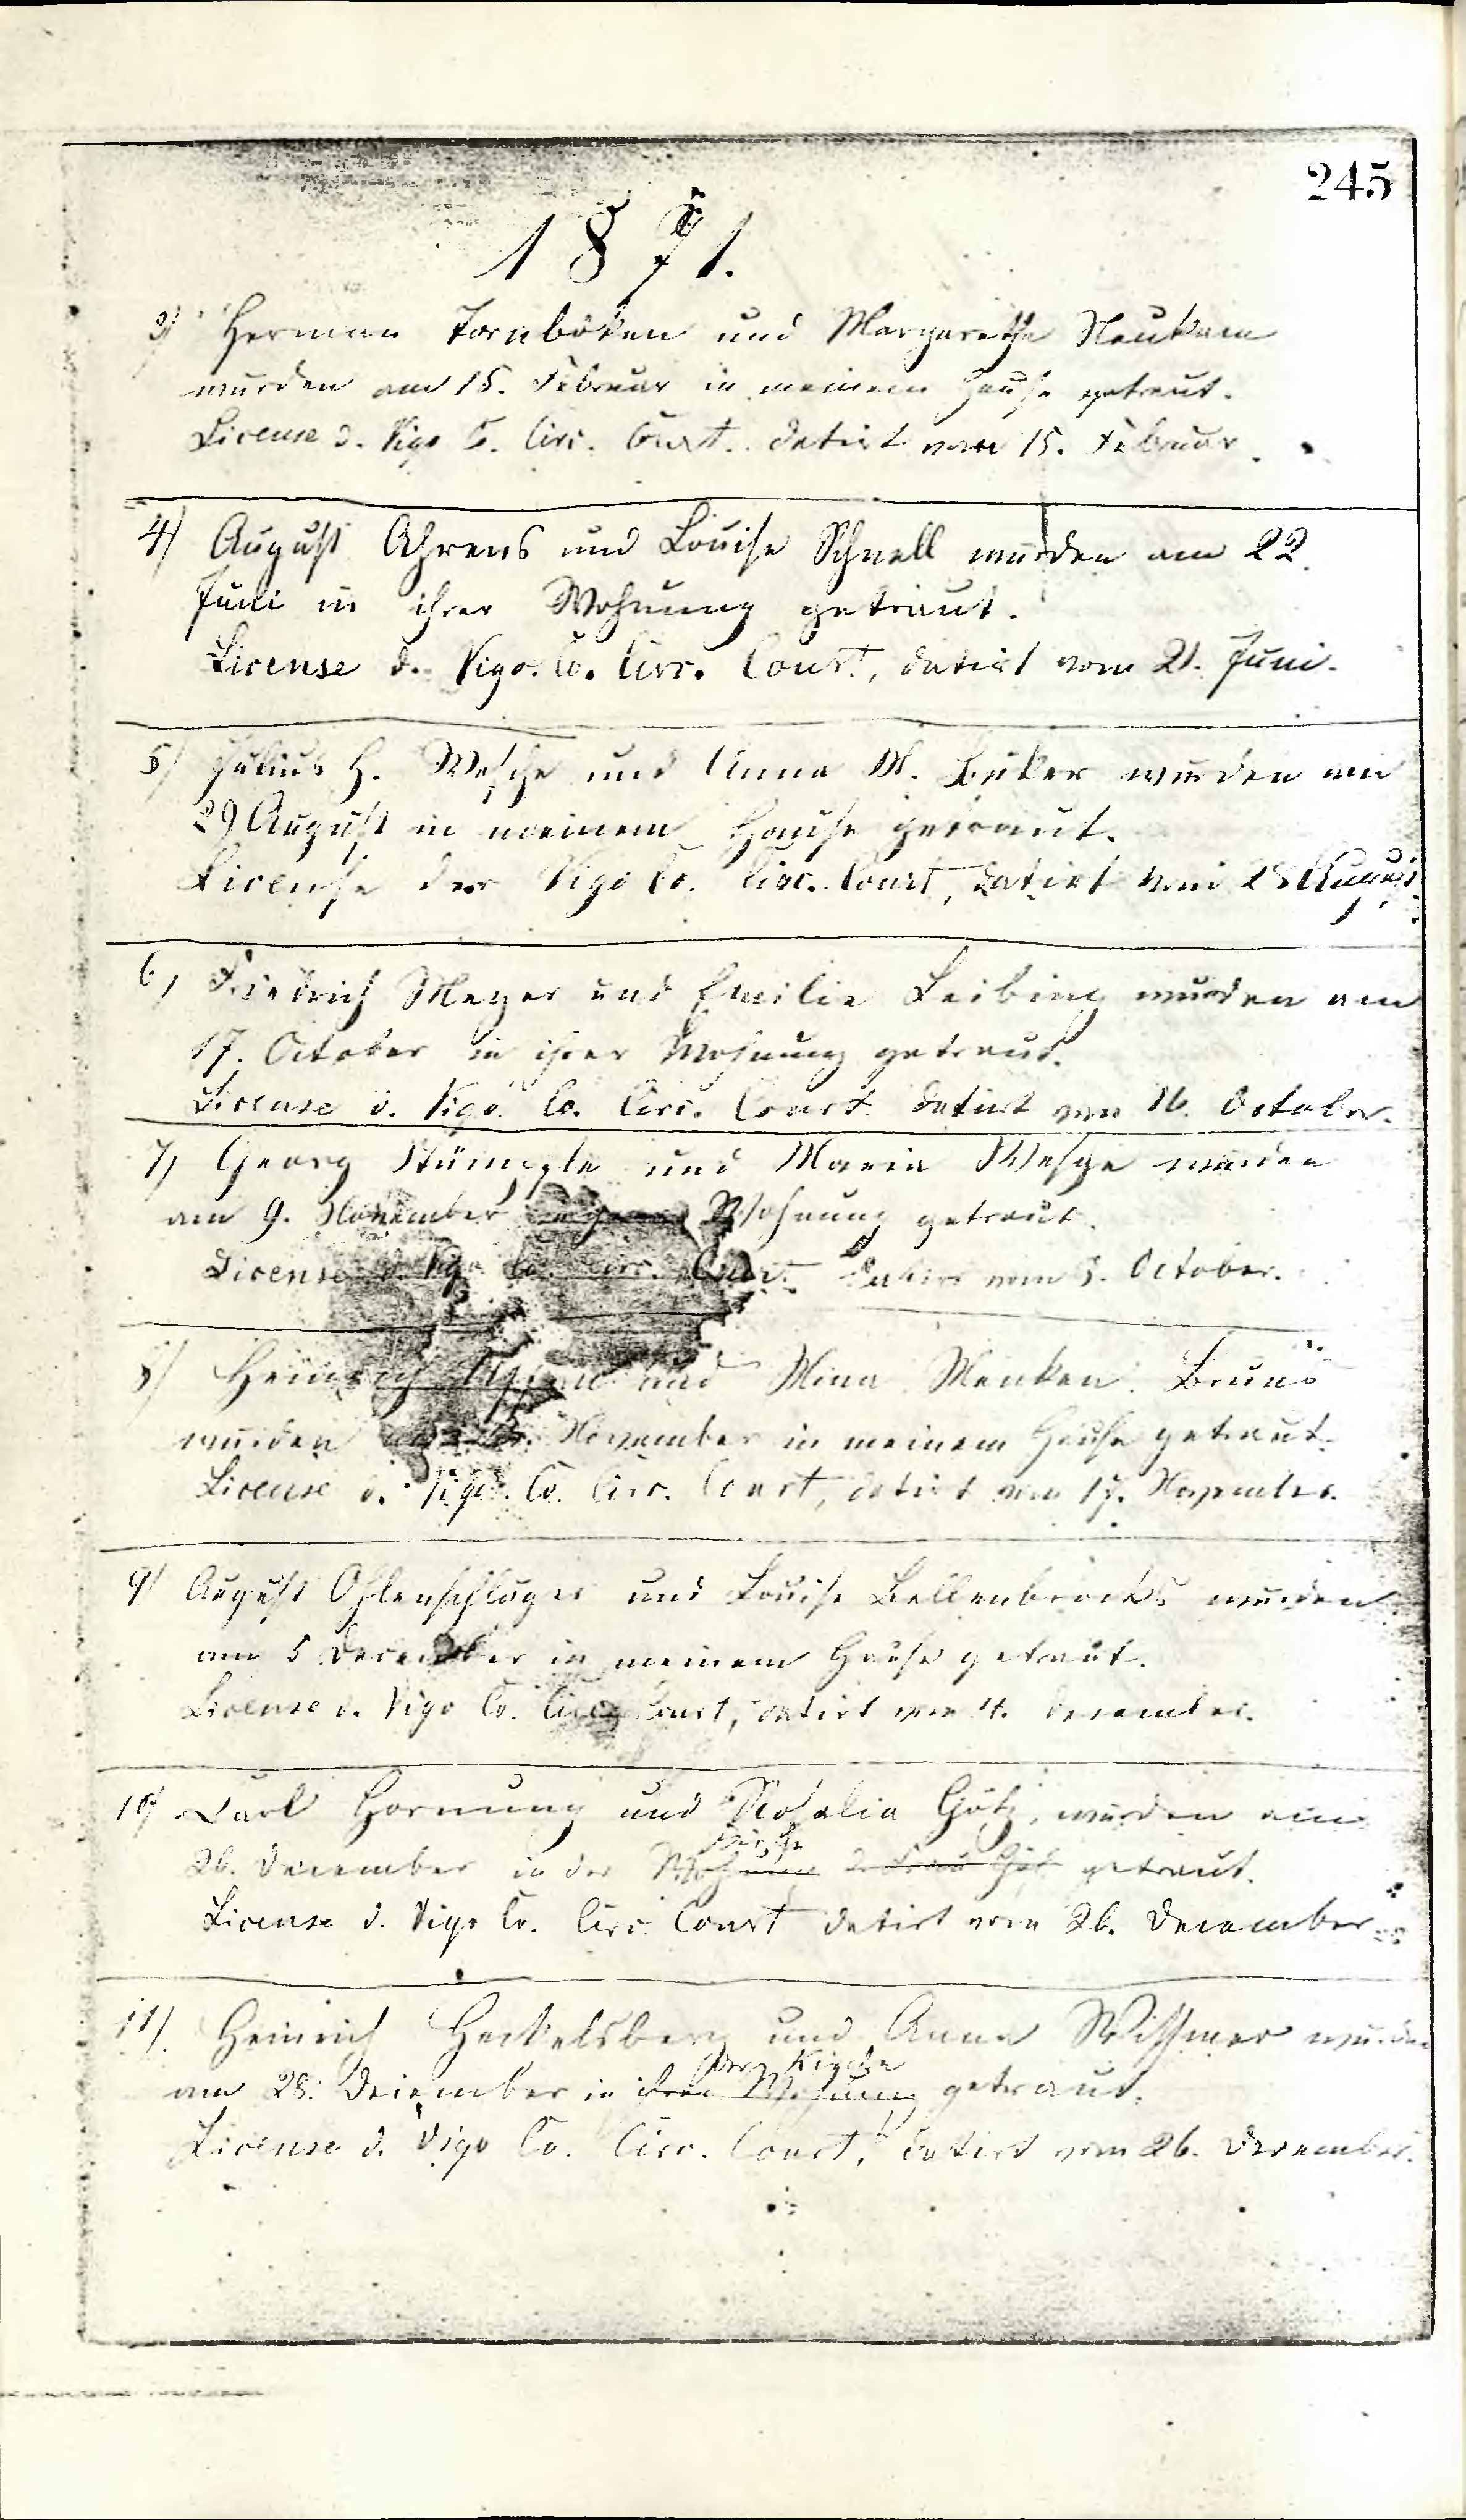 245
1871.
3) Herman Tornböken und Margarethe Neukam
wurden am 15. Februar in meinem Hause getraut.
License d. Vigo Co. Circ. Court. datirt vom 15. Februar.
4) August Ahrens und Louise Schnell wurden am 22.
Juni in ihrer Wohnung getraut.
License d. Vigo. Co. Circ. Court, datirt vom 21. Juni.
5) Julius H. Wesche und Anna M. Büker wurden am
29 August in meinem Hause getraut.
License der Vigo Co. Circ. Court, datirt vom 28 August
6) Friedrich Meyer und Emilie Leibing wurden am
17. October in ihrer Wohnung getraut.
License d. Vigo Co. Circ. Court datirt vom 16. October.
7) Georg Stümpfle und Maria Wesche wurden
am 9. November Wohnung getraut.
License d. Vigo Co. Circ. Court datirt vom October.
8) Heinrich und Mina Menken Bruns
wurden November in meinem Hause getraut.
License d. Vigo. Co. Circ. Court, datirt vom 17. November.
9) August Ohlenschläger und Louise Bellenbrocks wurden
am 5 December in meinem Hause getraut.
License d. Vigo Co. Circ Court, datirt vom 4. December.
10) Carl Hornung und Rosalia Götz, wurden am
Kirche
26. December in der Wohnung d. Frau Götz getraut.
License d. Vigo Co. Circ Court datirt vom 26. December
11). Heinrich Heckelsberg und Anna Wissmer wurden
der Kirche
am 28. December in ihrer Wohnung getraut.
License d. Vigo Co. Circ. Court, datirt vom 26. December.